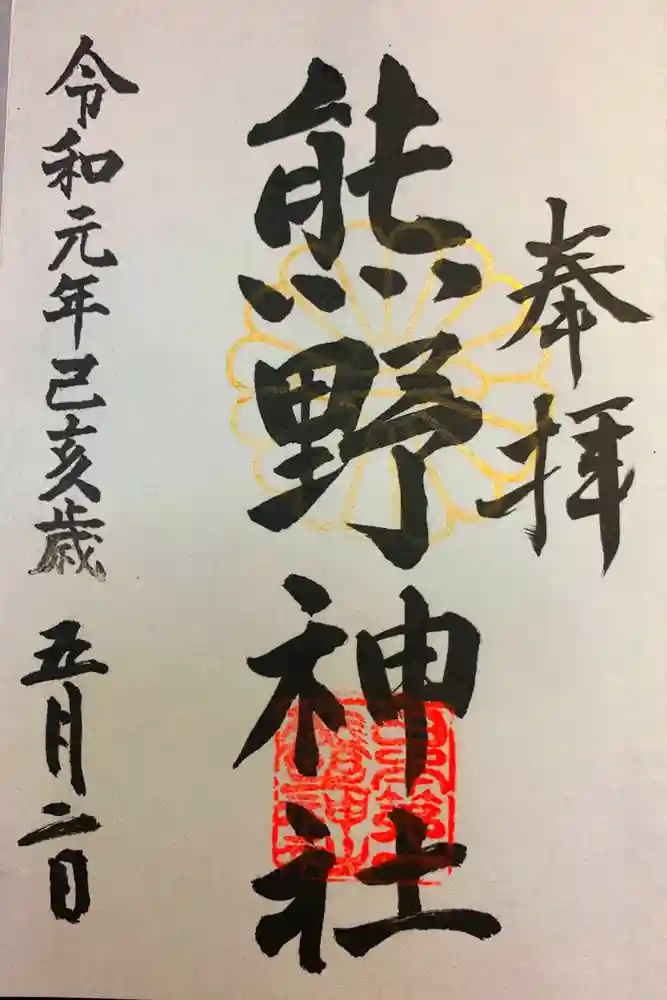 奉拝
熊野神社
令和元年己亥歳 五月二日